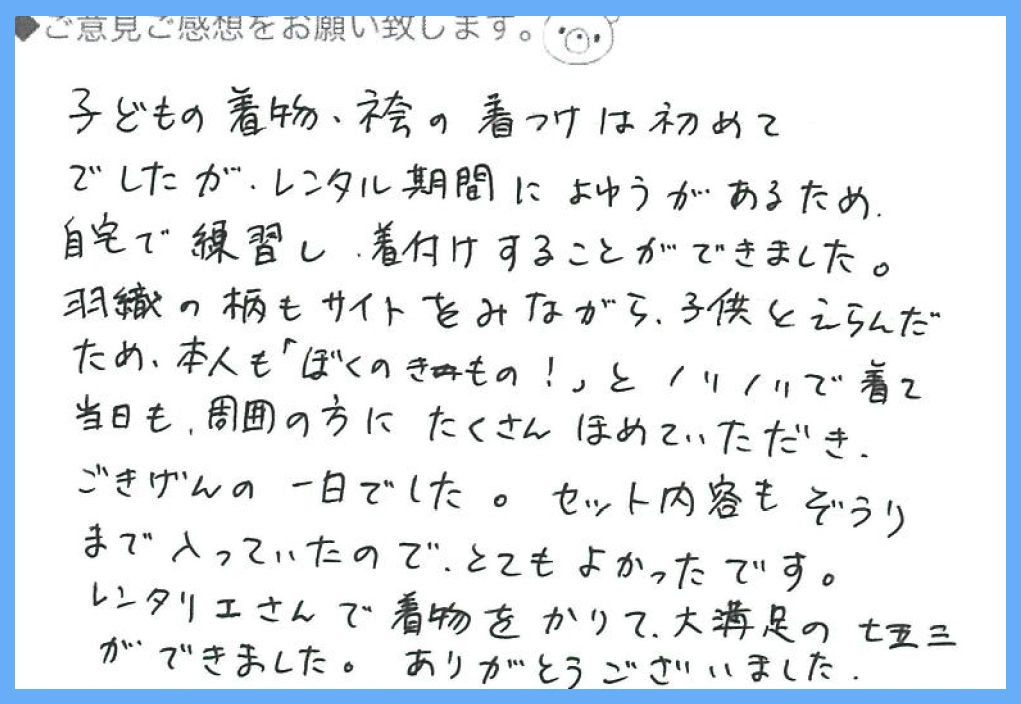 ◆ご意見ご感想をお願い致します。
子どもの着物、袴の着つけは初めて
でしたが、レンタル期間によゆうがあるため、
自宅で練習し、着付けすることができました。
羽織の柄もサイトをみながら、子供とえらんだ
ため、本人も「ぼくのきもの!」とノリノリで着て
当日も、周囲の方にたくさんほめていただき、
ごきげんの一日でした。セット内容もぞうり
まで入っていたので、とてもよかったです。
レンタリエさんで着物をかりて、大満足の七五三
ができました。ありがとうございました.